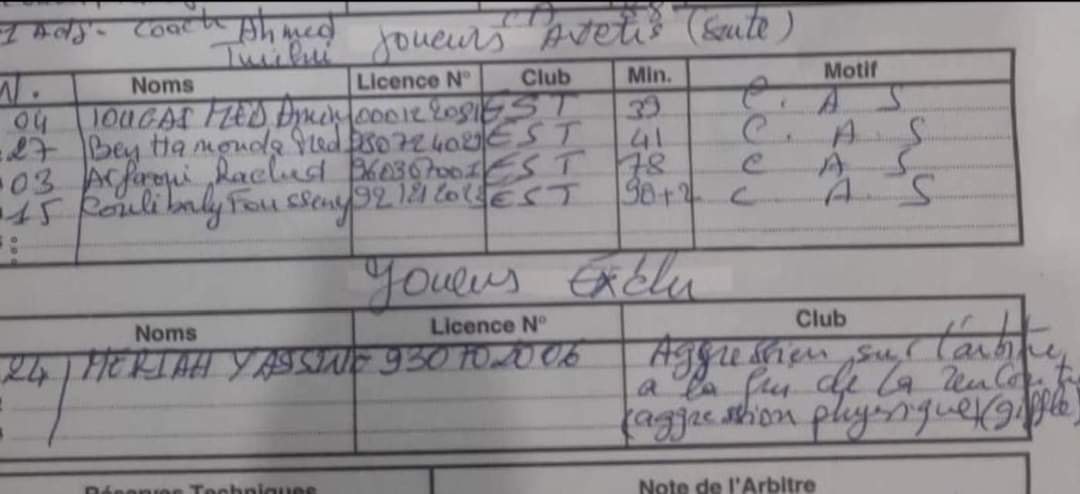 1 Adj. Coach Ahmed
Joueurs Avertis (Suite)
N. Noms Licence N° Club Min. Motif
04 TOUGAI MED Amin EST 39 C. A S
27 Ben Hamouda Med EST 41 C. A. S
03 Rached EST 78 C A S
15 Coulibaly Fousseny EST 90+2 C A. S
Joueurs Exclu
Noms Licence N° Club
24 MERIAH YASSINE 930702006 Aggression sur l'arbitre
a la fin de la rencontre
(aggression physique) (giffle)
Réserves Techniques Note de l'Arbitre